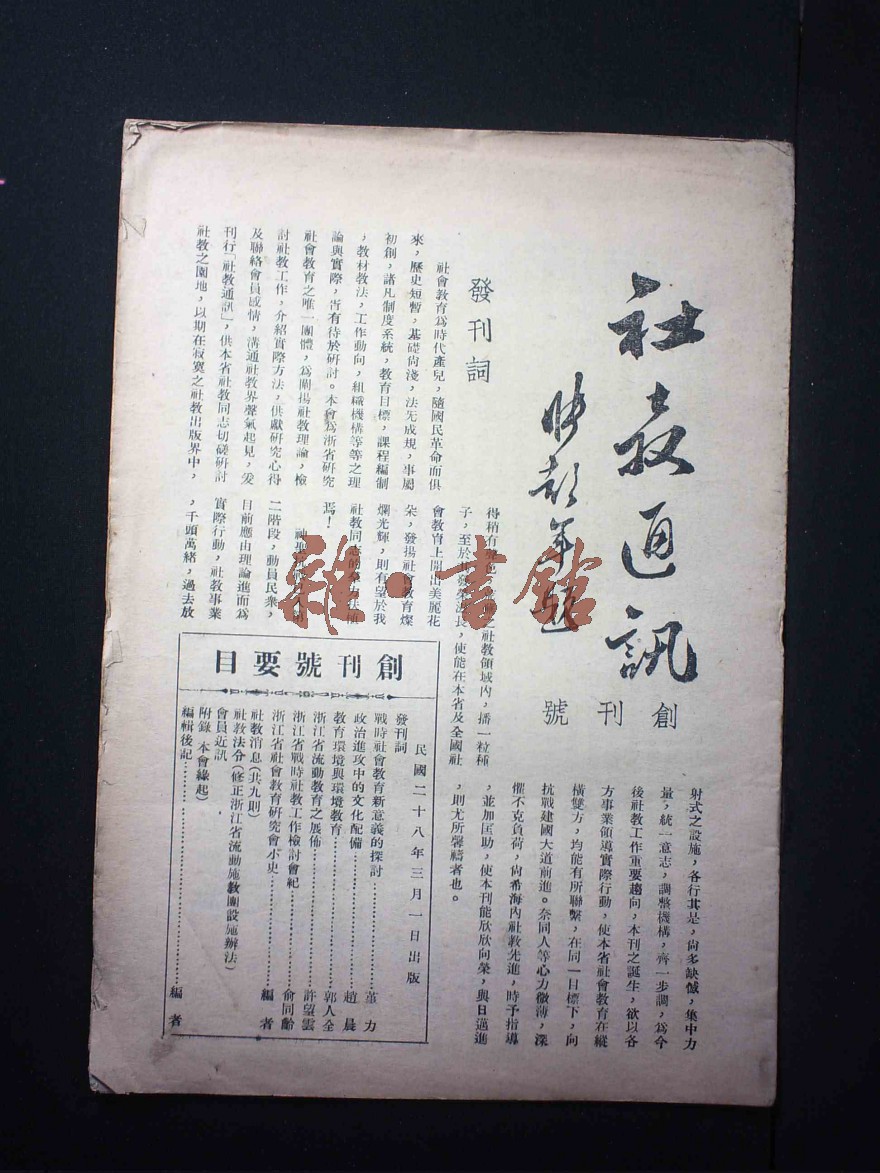 社教通訊
創刊號
發刊詞
社會教育爲時代產兒，隨國民革命而俱
來，歷史短暫，基礎尙淺，法先成規，事屬
初創，諸凡制度系統，教育目標，課程編制
，教材教法，工作動向，組織機構等等之理
論與實際，皆有待於研討。本會爲浙省研究
社會教育之唯一團體，爲闡揚社教理論，檢
討社教工作，介紹實際方法，供獻研究心得
及聯絡會員感情，溝通社教界聲氣起見，爰
刊行「社教通訊」，供本省社教同志切磋研討
社教之園地，以期在寂寞之社教出版界中，
得稍有
社教領域內，播一粒種
子，至於
長，使能在本省及全國社
會教育上開出美麗花
朵，發揚社會教育燦
爛光輝，則有望於我
社教同志
焉！
神聖
二階段，動員民衆，
目前應由理論進而爲
實際行動，社教事業
，千頭萬緒，過去放
射式之設施，各行其是，尙多缺憾，集中力
量，統一意志，調整機構，齊一步調，爲今
後社教工作重要趨向，本刊之誕生，欲以各
方事業領導實際行動，使本省社會教育在縱
橫雙方，均能有所聯繫，在同一目標下，向
抗戰建國大道前進。奈同人等心力微薄，深
懼不克負荷，尙希海內社教先進，時予指導
，並加匡助，使本刊能欣欣向榮，與日邁進
，則尤所馨禱者也。
創刊號要目
民國二十八年三月一日出版
發刊詞
戰時社會教育新意義的探討……………董力
政治進攻中的文化配備……………趙晨
教育環境與環境教育……………郭人全
浙江省流動教育之展佈……………許望雲
浙江省戰時社教工作檢討會紀……………俞同齡
浙江省社會教育研究會小史……………編者
社教消息（共九則）
社教法令（修正浙江省流動施教團設施辦法）
會員近訊
附錄 本會緣起）
編輯後記……………編者
雜·書館